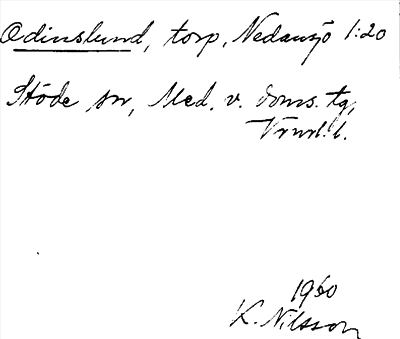 Odinslund, torp, Nedansjö 1:20
Stöde sn, Med. v. doms. tg,
Vrnrl. l.
1960
K. Nilsson